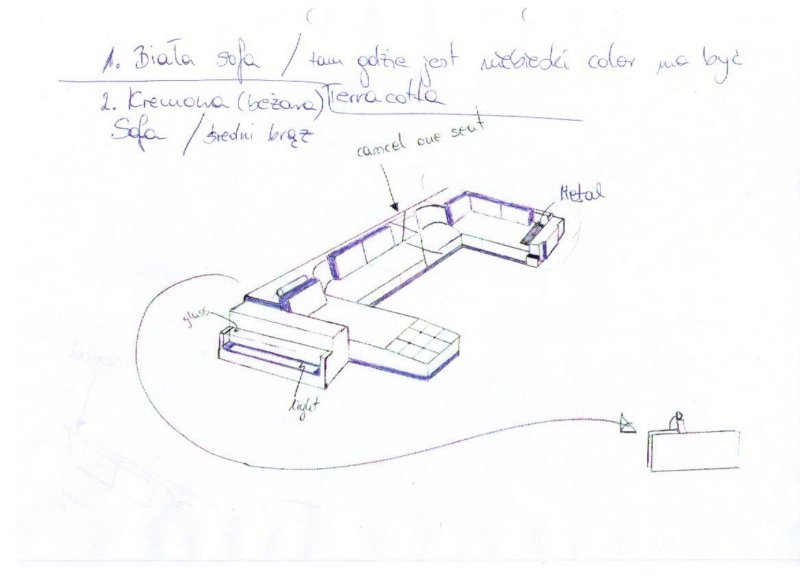 1. Biała sofa / tam gdzie jest niebieski color ma być
2. Kremowa (beżowa) Terracotta
Sofa / średni brąz
cancel one seat
Metal
glass
light